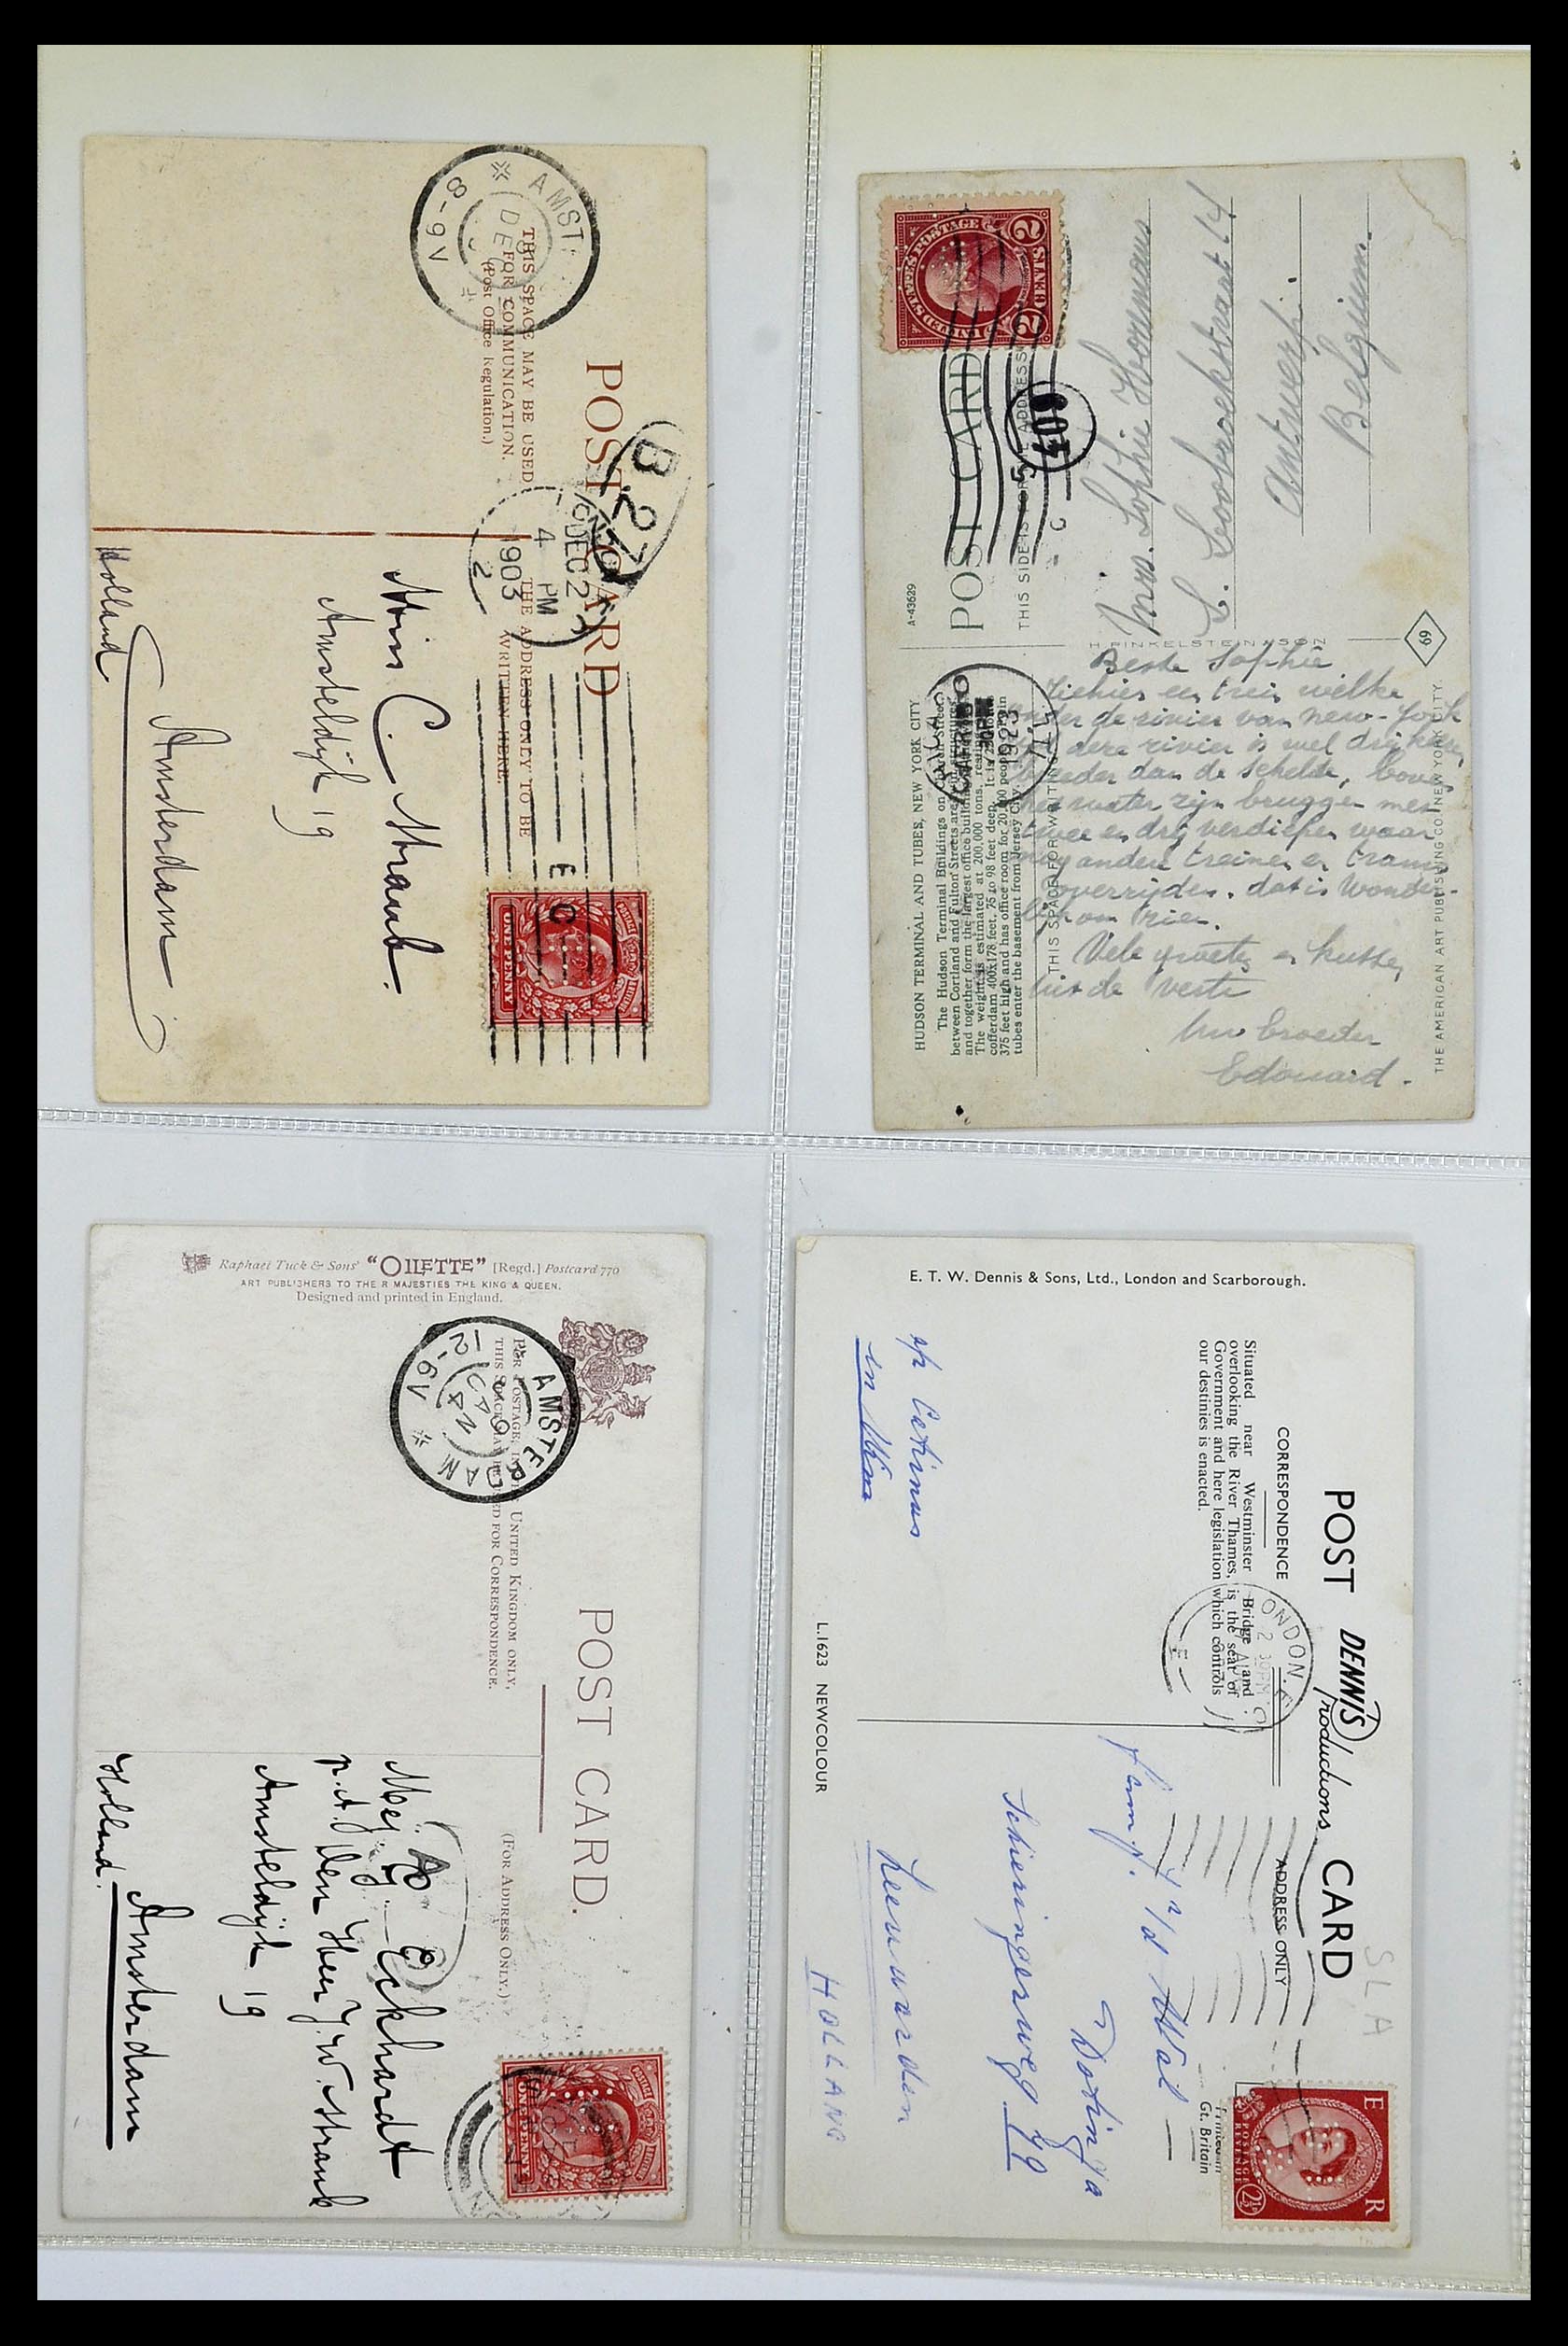 POST CARD
THIS SPACE MAY BE USED
FOR COMMUNICATION.
(Post Office Regulation.)
THE ADDRESS ONLY TO BE
WRITTEN HERE.
AMST
DEC
8-9V
B27
DEC 2
4 PM
1903
2
E
C
ONE PENNY
C. Straub.
Amsteldijk 19
Amsterdam
Holland
UNITED STATES POSTAGE
2 CENTS 2
POST CARD
THIS SIDE IS FOR ADDRESS
603
A-43629
Sophie
Antwerp.
Belgium.
H. FINKELSTEIN & SON
69
HUDSON TERMINAL AND TUBES, NEW YORK CITY.
The Hudson Terminal Buildings on Church Street,
between Cortland and Fulton Streets are twin structures
and together form the largest office building
The weight is estimated at 200,000 tons, resting
cofferdam 400x178 feet, 75 to 98 feet deep. It is 22 stories
375 feet high and has office room for 20,000 people. Train
tubes enter the basement from Jersey City.
THIS SPACE FOR WRITING
THE AMERICAN ART PUBLISHING CO. NEW YORK CITY.
1923
Beste Sophie
Ziehier een trein welke
onder de rivier van New-York
deze rivier is wel drij keeren
breeder dan de Schelde, boven
het water zijn bruggen met
twee en drij verdiepen waar
nog andere treinen en trams
overrijden. dat is wonder-
lijk om zien.
Vele groeten en kussen
uit de verte
Uw broeder
Edouard.
Raphael Tuck & Sons' "OILETTE" [Regd.] Postcard 770
ART PUBLISHERS TO THEIR MAJESTIES THE KING & QUEEN.
Designed and printed in England.
POST CARD.
FOR POSTAGE IN THE UNITED KINGDOM ONLY,
THIS SPACE MAY BE USED FOR CORRESPONDENCE.
(FOR ADDRESS ONLY.)
AMSTERDAM
12-6V
ONE PENNY
Mej. Eckhardt
p.A. Den Heer J.W. Straub
Amsteldijk 19
Amsterdam
Holland.
E. T. W. Dennis & Sons, Ltd., London and Scarborough.
POST CARD
DENNIS
Productions
CORRESPONDENCE
ADDRESS ONLY
Situated near Westminster Bridge and
overlooking the River Thames, is the seat of
Government and here legislation which controls
our destinies is enacted.
LONDON. E.C.
E
SLA
Printed in
Gt. Britain
E R
POSTAGE REVENUE
2½D
fam.
v/d Wal —
Dotinga
Schieringerweg 79
Leeuwarden
HOLLAND
L.1623 NEWCOLOUR